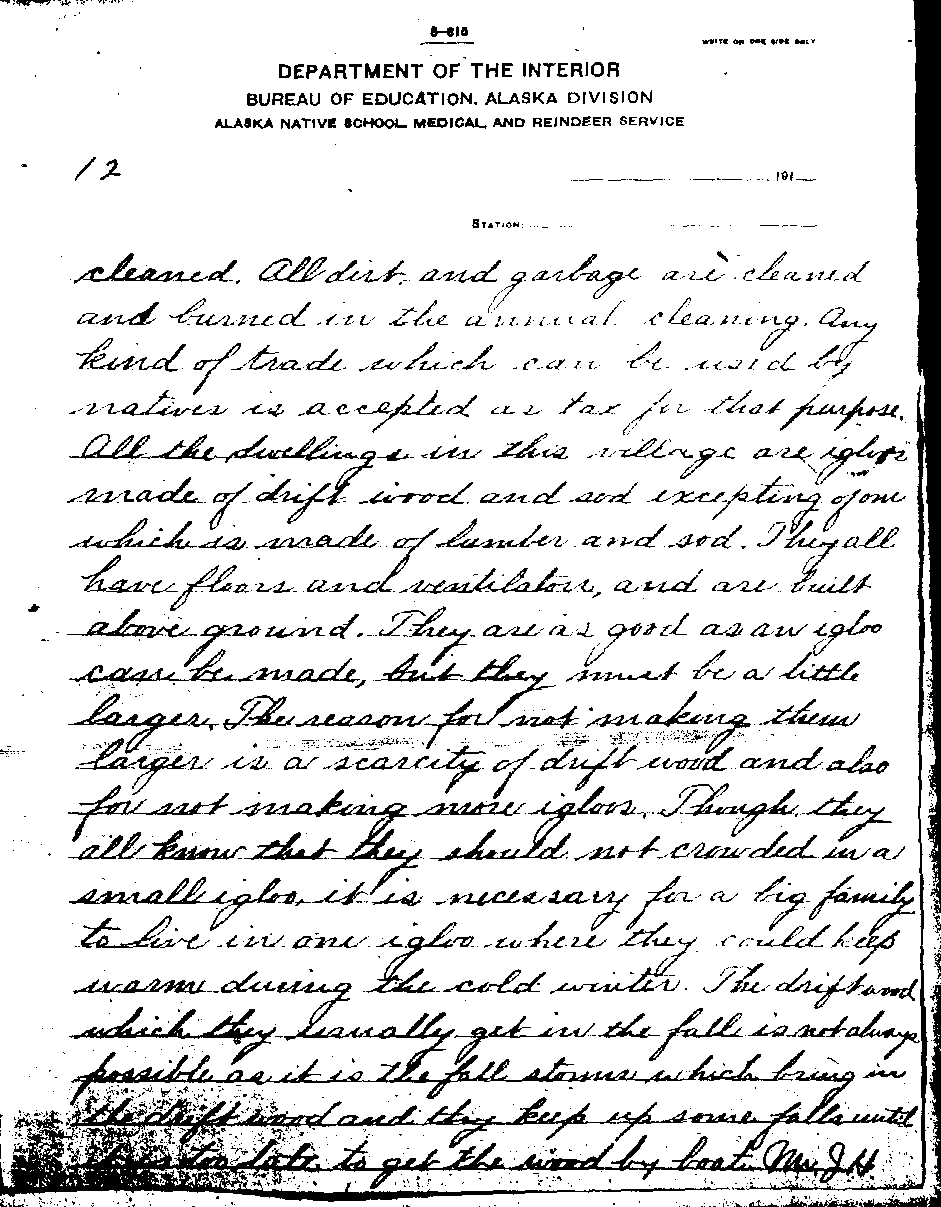 8—615
WRITE ON ONE SIDE ONLY
DEPARTMENT OF THE INTERIOR
BUREAU OF EDUCATION, ALASKA DIVISION
ALASKA NATIVE SCHOOL, MEDICAL, AND REINDEER SERVICE
12
191
STATION:
cleaned. All dirt, and garbage are cleaned
and burned in the annual cleaning. Any
kind of trade which can be used by
natives is accepted as tax for that purpose.
All the dwellings in this village are igloos
made of drift wood and sod excepting of one
which is made of lumber and sod. They all
have floors and ventilators, and are built
above ground. They are as good as an igloo
can be made, but they must be a little
larger. The reason for not making them
larger is a scarcity of drift wood and also
for not making more igloos. Though they
all know that they should not crowded in a
small igloo, it is necessary for a big family
to live in one igloo where they could keep
warm during the cold winter. The drift wood
which they usually get in the fall is not always
possible as it is the fall storms which bring in
the drift wood and they keep up some falls until
it is too late to get the wood by boat. Mr. J H